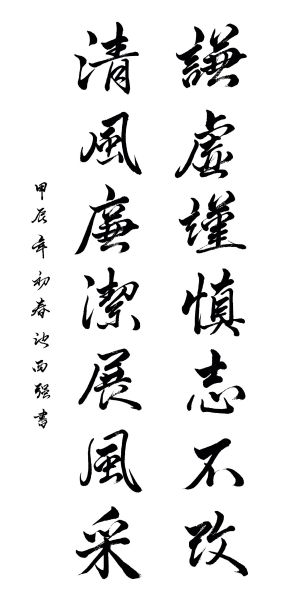 謙虛謹慎志不改
清風廉潔展風采
甲辰年初春池西强書